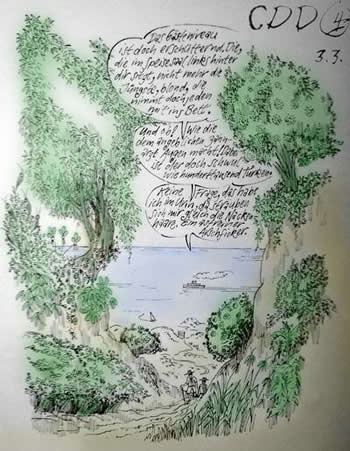 CDD 4
3.3.
Das Gästeniveau
ist doch erschütternd. Die,
die im Speisesaal links hinter
dir sitzt, nicht mehr die
Jüngste, blond, die
nimmt doch jeden
mit ins Bett.
Und ob! Wie die
dem angeblichen
Augen macht. Dabei
ist der doch schwul
wie hunderttausend Türken.
Keine Frage, das hab
ich im Urin, da sträuben
sich mir gleich die Nacken-
haare. Ein